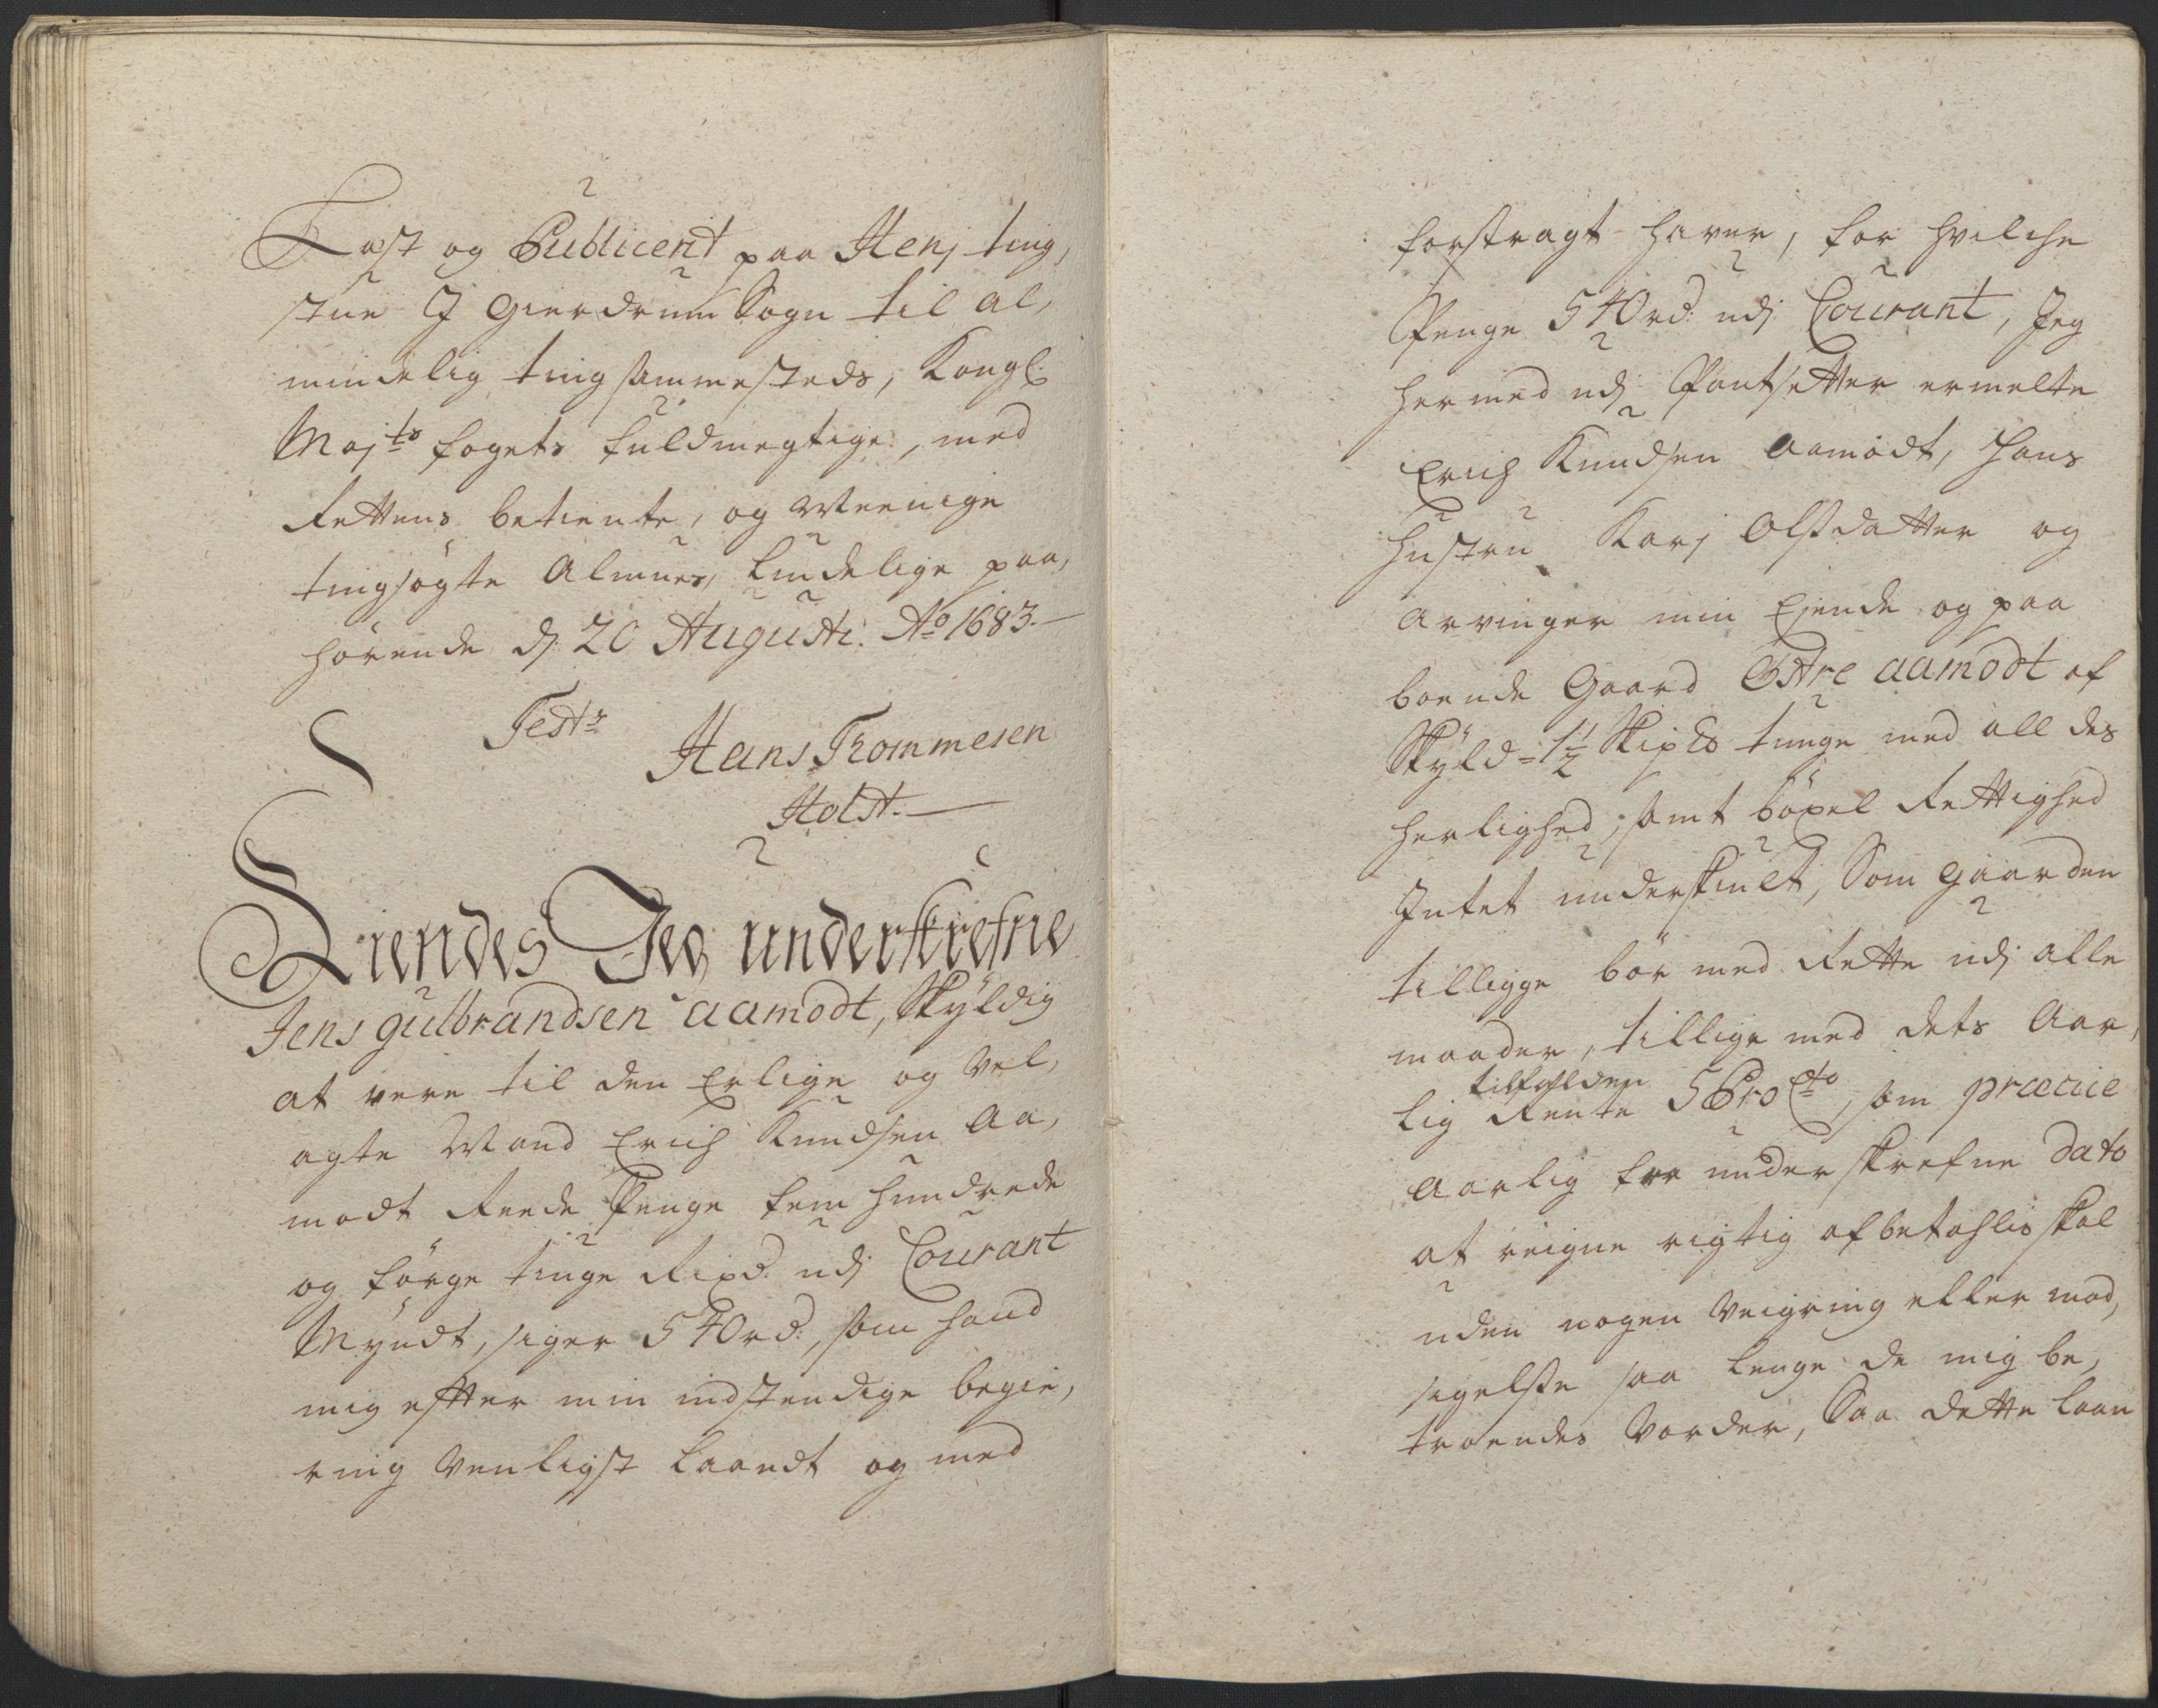 Læst og Publicert paa Henj ting,
stue J Gierdrum Sogn til al,
mindelig ting sammesteds, Kongl:
Majts fogets fuldmegtige, med
Rettens betiente, og Meenige
tingsøgte Almue, Lundelige paa,
hørende d. 20 Augusti. Ao 1683.
Test:
Hans Trommesen
Holst.
Kiendes Jeg underskrefne
Jens gulbrandsen aamodt, Skyldig
at vere til den Erlige og Vel,
agte Mand Erich Knudsen Aa,
modt Reede Penge fem hundrede
og førge tiuge Rixd. udj Courant
Myndt, siger 540 rd:, som hand
mig efter min indstendige begie,
ring Venligst laandt og med
forstragt haver, for hvilche
Penge 540 rd: udj Courant, Jeg
hermed udj Pantsetter ermelte
Erich Knudsen Aamodt, hans
hustru Karj Olsdatter og
Arvinger min Ejende og paa
boende Gaard Østre aamodt af
Skyld = 1½ Skipd tunge med all des
herlighed, samt böxel Rettighed
Intet underskiult, Som gaarden
tilligge bør med Rette udj alle
maader, tillige med dets Aar,
tilfalden
lig Rente 5 Pro Cto, som præcise
Aarlig fra underskrefne Dato
at reigne rigtig afbetahlis skal
uden nogen Veigring eller mod,
sigelse saa lenge de mig be,
troendes Vorder, Saa dette laan